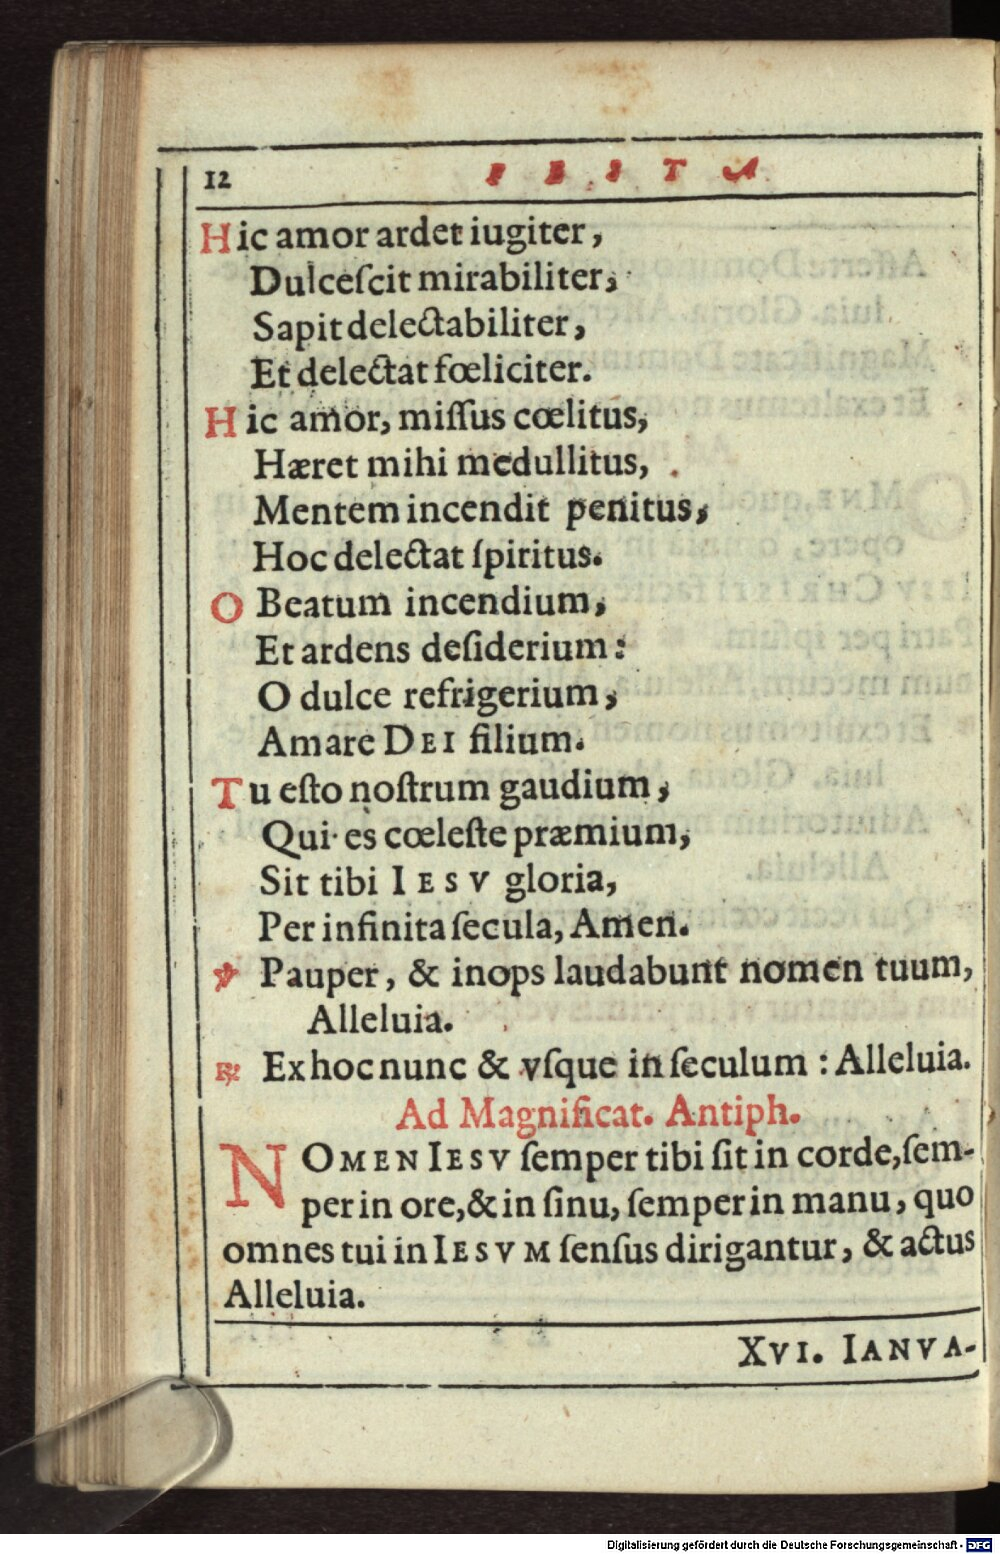 12 FESTA
Hic amor ardet iugiter,
Dulceſcit mirabiliter,
Sapit delectabiliter,
Et delectat fœliciter.
Hic amor, miſſus cœlitus,
Hæret mihi medullitus,
Mentem incendit penitus,
Hoc delectat ſpiritus.
O Beatum incendium,
Et ardens deſiderium:
O dulce refrigerium,
Amare DEI filium.
Tu eſto noſtrum gaudium,
Qui es cœleſte præmium,
Sit tibi IESV gloria,
Per infinita ſecula, Amen.
℣ Pauper, & inops laudabunt nomen tuum,
Alleluia.
℟ Ex hoc nunc & vſque in ſeculum: Alleluia.
Ad Magnificat. Antiph.
NOMEN IESV ſemper tibi ſit in corde, ſem-
per in ore, & in ſinu, ſemper in manu, quo
omnes tui in IESVM ſenſus dirigantur, & actus
Alleluia.
XVI. IANVA-
Digitalisierung gefördert durch die Deutsche Forschungsgemeinschaft - DFG